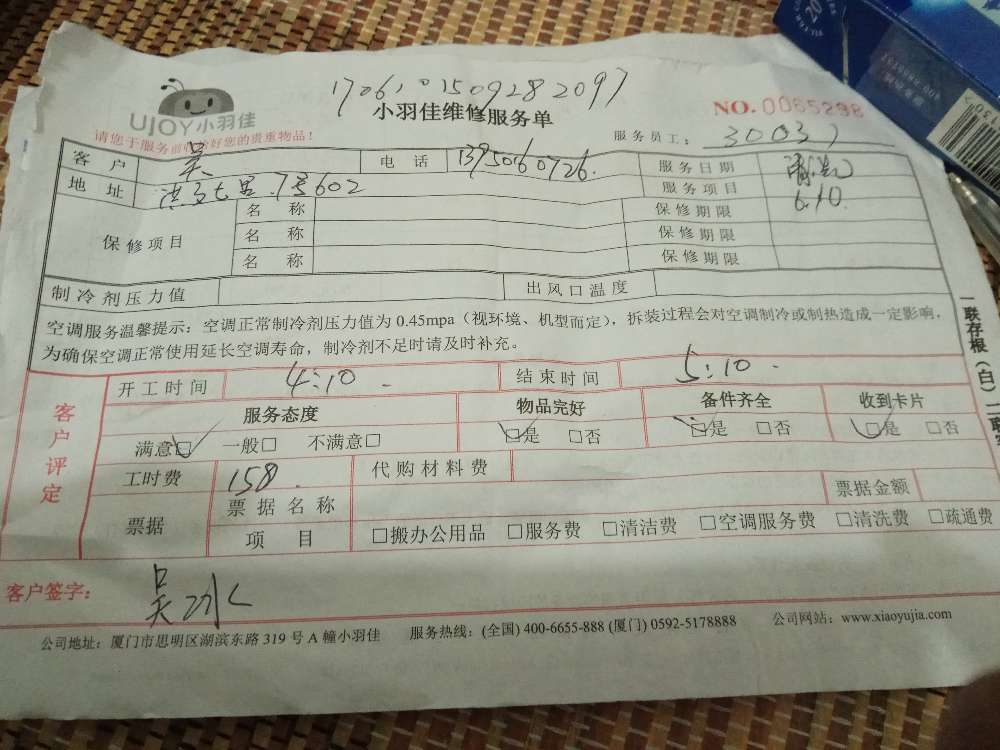 170610150928 2097
UJOY小羽佳
小羽佳维修服务单
NO.0065298
请您于服务前收好您的贵重物品!
服务员工: 30037
客户 吴 电话 1395060726. 服务日期
地址 7号602 服务项目 6.10.
保修项目 名称 保修期限
名称 保修期限
名称 保修期限
制冷剂压力值 出风口温度
空调服务温馨提示:空调正常制冷剂压力值为 0.45mpa(视环境、机型而定),拆装过程会对空调制冷或制热造成一定影响,
为确保空调正常使用延长空调寿命,制冷剂不足时请及时补充。
客户评定
开工时间 4:10. 结束时间 5:10.
服务态度 物品完好 备件齐全 收到卡片
满意☑ 一般□ 不满意□ ☑是 □否 ☑是 □否 ☑是 □否
工时费 158. 代购材料费
票据 票据名称 票据金额
项目 □搬办公用品 □服务费 □清洁费 □空调服务费 □清洗费 □疏通费
客户签字: 吴
公司地址:厦门市思明区湖滨东路 319 号 A 幢小羽佳 服务热线:(全国) 400-6655-888 (厦门) 0592-5178888 公司网站:www.xiaoyujia.com
一联存根(白)二联